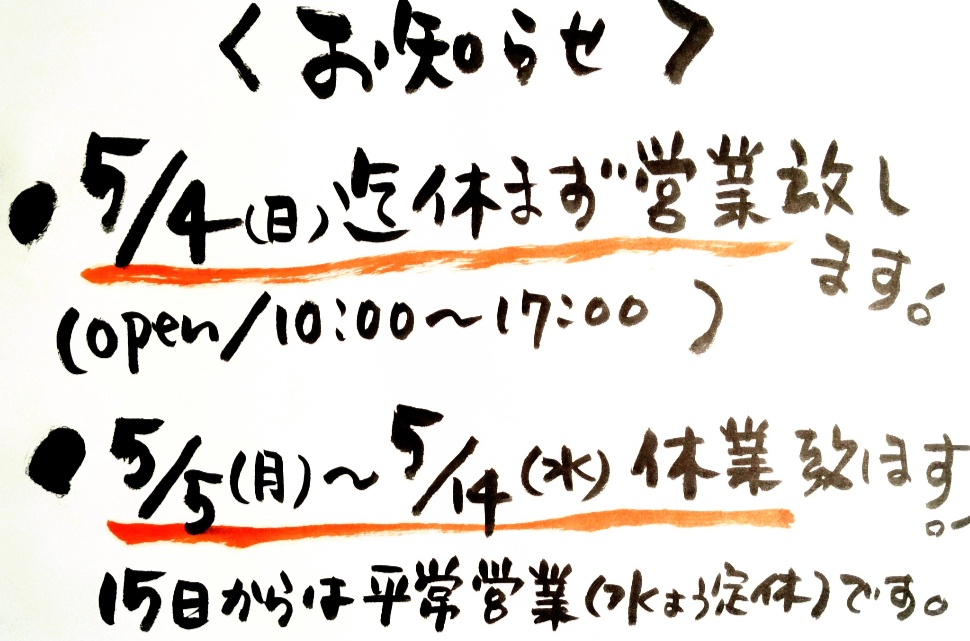 〈お知らせ〉
●5/4(日)迄休まず営業致します。
(open/10:00〜17:00)
●5/5(月)〜5/14(水)休業致します。
15日からは平常営業(水よう定休)です。